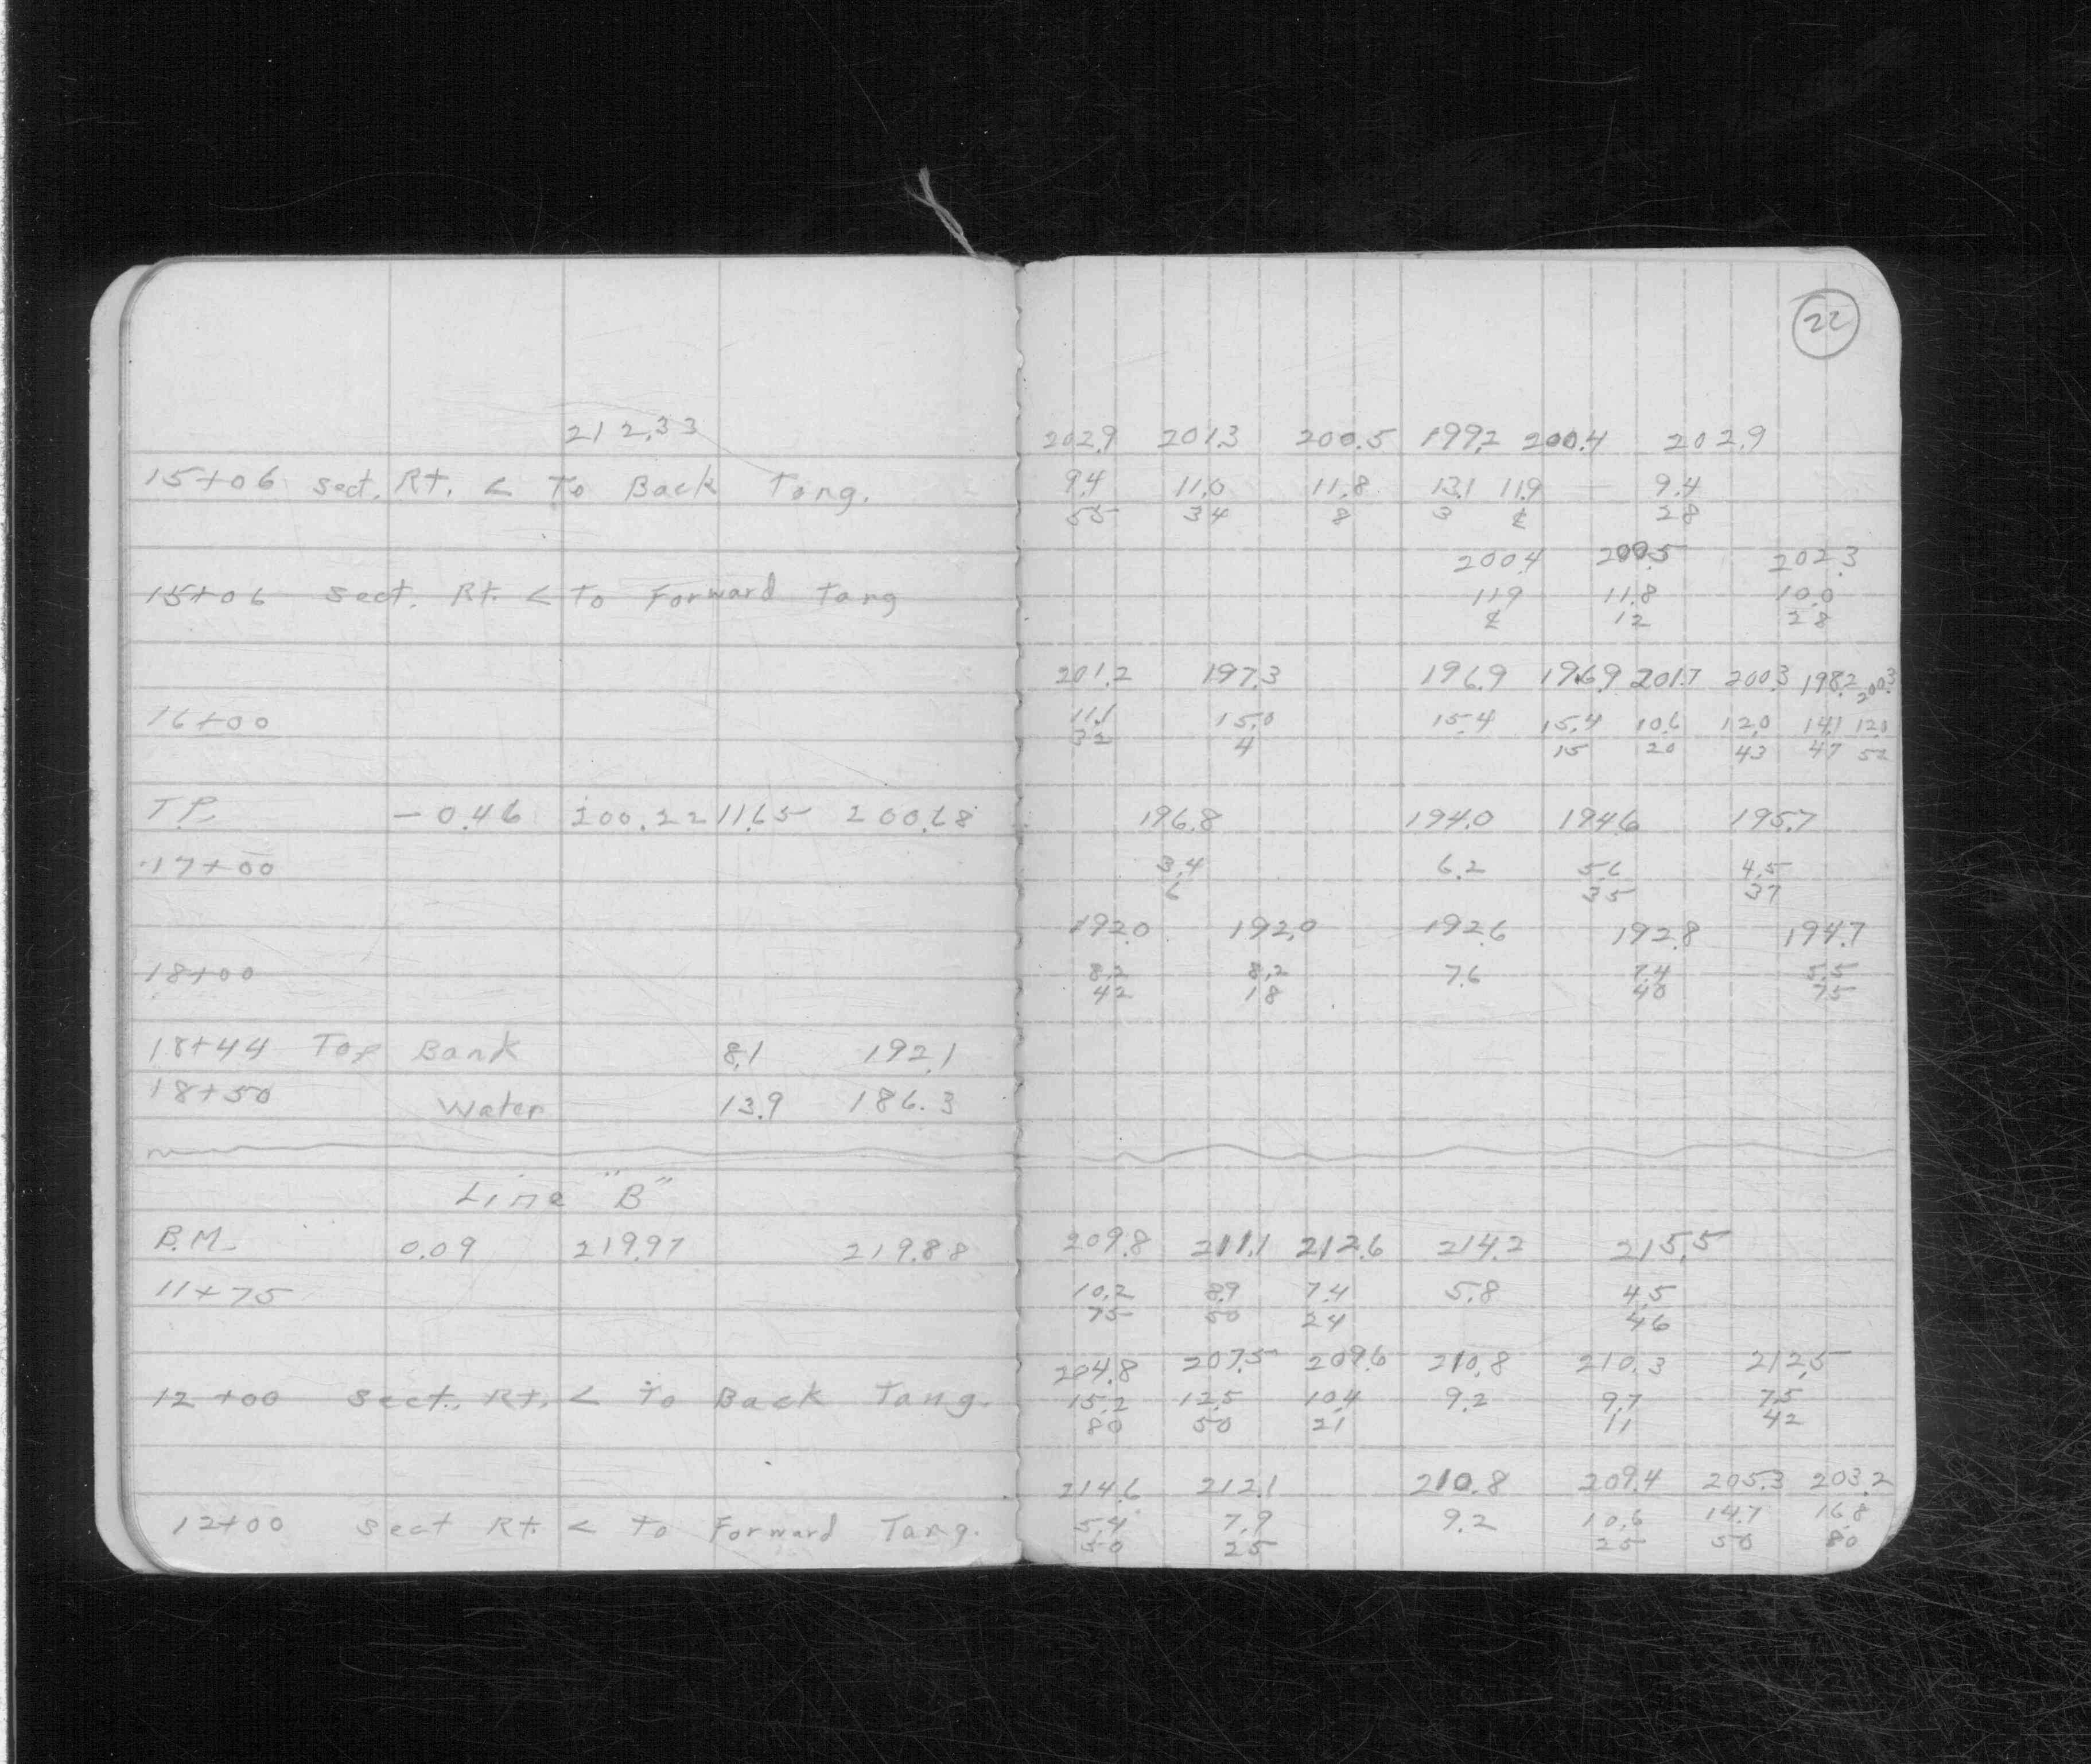 22
212.33
202.9 201.3 200.5 199.2 200.4 202.9
15+06 sect. Rt. < To Back Tang.
9.4 11.0 11.8 13.1 11.9 9.4
55 34 8 3 ¢ 28
200.4 200.5 202.3
15+06 Sect. Rt. < To Forward Tang
11.9 11.8 10.0
¢ 12 28
201.2 197.3 196.9 196.9 201.7 200.3 198.2 200.3
16+00
11.1 15.0 15.4 15.4 10.6 12.0 14.1 12.0
32 4 15 20 43 47 52
T.P. - 0.46 200.22 11.65 200.68
196.8 194.0 194.6 195.7
17+00
3.4 6.2 5.6 4.5
6 35 37
192.0 192.0 192.6 192.8 194.7
18+00
8.2 8.2 7.6 7.4 5.5
42 18 40 75
18+44 Top Bank 8.1 192.1
18+50 Water 13.9 186.3
Line "B"
B.M. 0.09 219.97 219.88
209.8 211.1 212.6 214.2 215.5
11+75
10.2 8.9 7.4 5.8 4.5
75 50 24 46
204.8 207.5 209.6 210.8 210.3 212.5
12+00 Sect. Rt. < To Back Tang.
15.2 12.5 10.4 9.2 9.7 7.5
80 50 21 11 42
214.6 212.1 210.8 209.4 205.3 203.2
12+00 Sect Rt. < To Forward Tang.
5.4 7.9 9.2 10.6 14.7 16.8
50 25 25 50 80